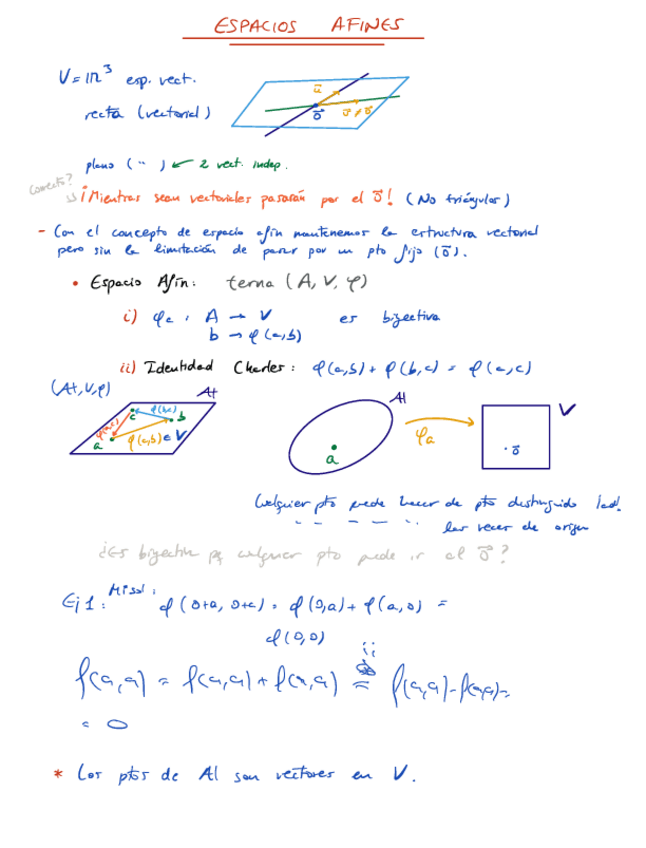 ESPACIOS AFINES
V = IR³ esp. vect.
recta (vectorial)
plano ( " ) ← 2 vect. indep.
Correcto?
¡Mientras sean vectoriales pasarán por el o⃗! (No triángular)
- Con el concepto de espacio afín mantenemos la estructura vectorial
pero sin la limitación de pasar por un pto fijo (o⃗).
• Espacio Afín: terna (A, V, φ)
i) φa : A → V es biyectiva
b → φ(a,b)
ii) Identidad Charles: φ(a,b) + φ(b,c) = φ(a,c)
(A, V, φ)
A
a
b
c
φ(b,c)
φ(a,b) ∈ V
A
a
φa
V
· o⃗
Cualquier pto puede hacer de pto distinguido
las veces de origen
¿Es biyectiva pq cualquier pto puede ir al o⃗?
Ej 1: Mi sol:
φ(0+a, 0+a) = φ(0,a) + φ(a,0) =
φ(0,0)
φ(a,a) = φ(a,a) + φ(a,a) = φ(a,a) - φ(a,a) =
= 0
* Los ptos de A son vectores en V.